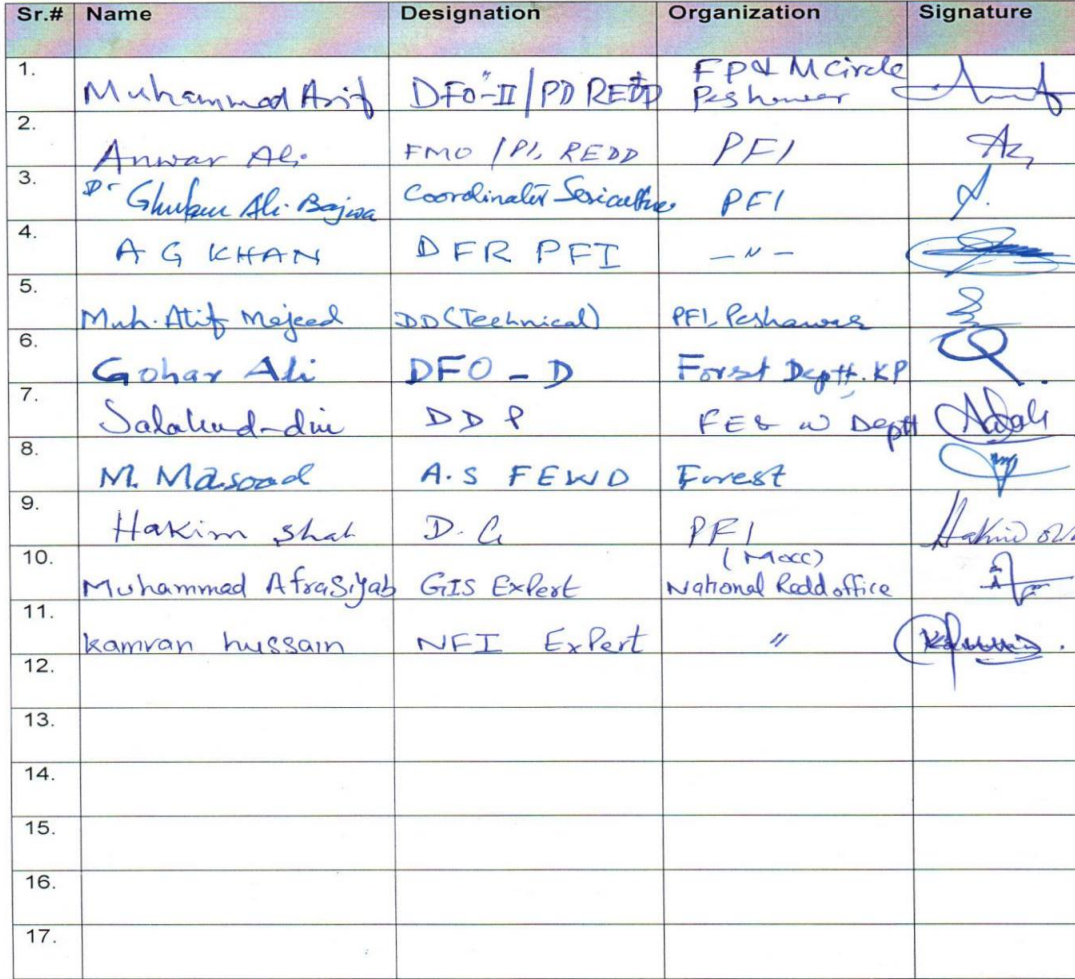 Sr.# Name Designation Organization Signature
1. Muhammad Arif DFO-II/PD REDD FP&M Circle Peshawar
2. Anwar Ali FMO/PI, REDD PFI
3. Dr Ali Bajwa Coordinator Sericulture PFI
4. A G KHAN DFR PFI —〃—
5. Muh. Atif Majeed DD (Technical) PFI, Peshawar
6. Gohar Ali DFO-D Forest Deptt. KP
7. Salahud-din DDP FE& W Deptt
8. M. Masood A.S FEWD Forest
9. Hakim Shah D.G PFI
10. Muhammad Afrasiyab GIS Expert (MoCC) National Redd office
11. kamran hussain NFI Expert 〃
12.
13.
14.
15.
16.
17.